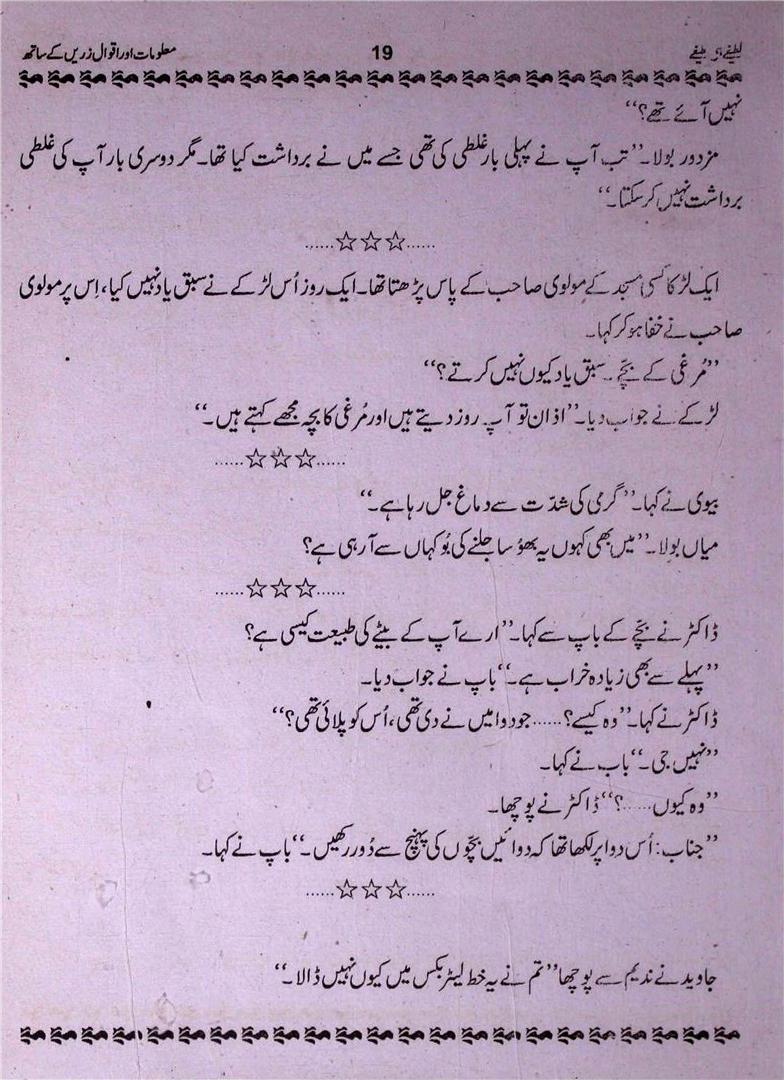 لطیفے ہی لطیفے 19 معلومات اور اقوال زریں کے ساتھ
نہیں آئے تھے؟‘‘
مزدور بولا۔’’تب آپ نے پہلی بار غلطی کی تھی جسے میں نے برداشت کیا تھا۔ مگر دوسری بار آپ کی غلطی
برداشت نہیں کرسکتا۔‘‘
......☆☆☆......
ایک لڑکا کسی مسجد کے مولوی صاحب کے پاس پڑھتا تھا۔ ایک روز اُس لڑکے نے سبق یاد نہیں کیا، اِس پر مولوی
صاحب نے خفا ہو کر کہا۔
’’مُرغی کے بچّے۔ سبق یاد کیوں نہیں کرتے؟‘‘
لڑکے نے جواب دیا۔’’اذان تو آپ روز دیتے ہیں اور مُرغی کا بچہ مجھے کہتے ہیں۔‘‘
......☆☆☆......
بیوی نے کہا۔’’گرمی کی شدّت سے دماغ جل رہا ہے۔‘‘
میاں بولا۔’’میں بھی کہوں یہ بھُوسا جلنے کی بُو کہاں سے آرہی ہے؟
......☆☆☆......
ڈاکٹر نے بچّے کے باپ سے کہا۔’’ارے آپ کے بیٹے کی طبیعت کیسی ہے؟
’’پہلے سے بھی زیادہ خراب ہے۔‘‘باپ نے جواب دیا۔
ڈاکٹر نے کہا۔’’وہ کیسے؟......جو دوا میں نے دی تھی، اُس کو پلائی تھی؟‘‘
’’نہیں جی۔‘‘باپ نے کہا۔
’’وہ کیوں......؟‘‘ڈاکٹر نے پوچھا۔
’’جناب: اُس دوا پر لکھا تھا کہ دوائیں بچّوں کی پہنچ سے دُور رکھیں۔‘‘باپ نے کہا۔
......☆☆☆......
جاوید نے ندیم سے پوچھا’’تم نے یہ خط لیٹر بکس میں کیوں نہیں ڈالا۔‘‘